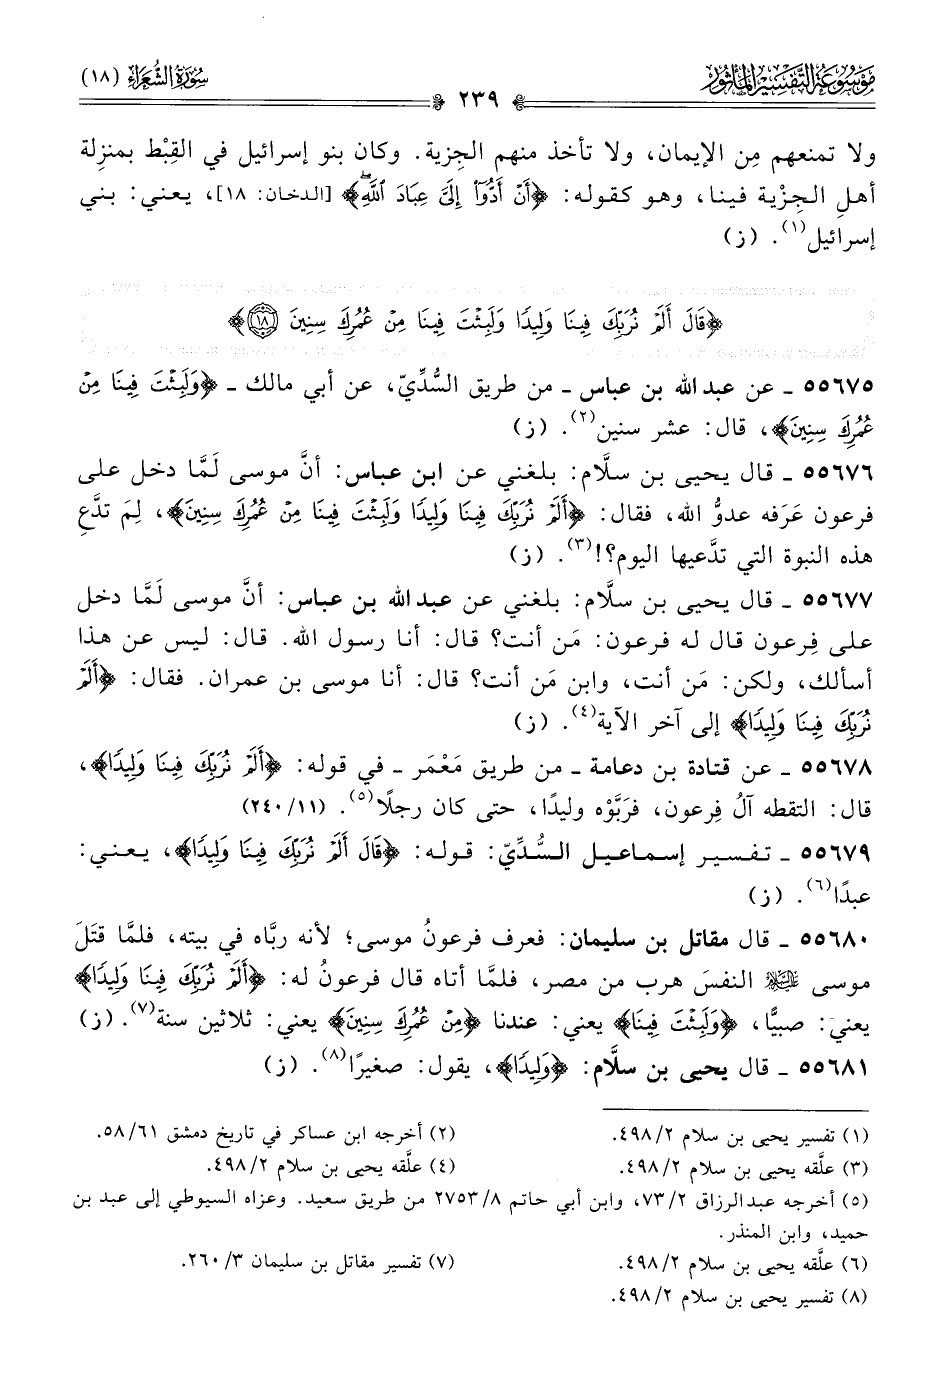 مَوْسُوعَةُ التَّفْسِيرِ المَأْثُورِ
سُورَةُ الشُّعَرَاءِ (١٨)
٢٣٩
ولا تمنعهم مِن الإيمان، ولا تأخذ منهم الجزية. وكان بنو إسرائيل في القِبْط بمنزلة
أهلِ الجِزْية فينا، وهو كقوله: ﴿أَنْ أَدُّوٓا۟ إِلَىَّ عِبَادَ ٱللَّهِ﴾ [الدخان: ١٨]، يعني: بني
إسرائيل(١). (ز)
﴿قَالَ أَلَمْ نُرَبِّكَ فِينَا وَلِيدًا وَلَبِثْتَ فِينَا مِنْ عُمُرِكَ سِنِينَ ١٨﴾
٥٥٦٧٥ ـ عن عبد الله بن عباس ـ من طريق السُّدِّيّ، عن أبي مالك ـ ﴿وَلَبِثْتَ فِينَا مِنْ
عُمُرِكَ سِنِينَ﴾، قال: عشر سنين(٢). (ز)
٥٥٦٧٦ ـ قال يحيى بن سلَّام: بلغني عن ابن عباس: أنَّ موسى لَمَّا دخل على
فرعون عَرَفه عدوُّ الله، فقال: ﴿أَلَمْ نُرَبِّكَ فِينَا وَلِيدًا وَلَبِثْتَ فِينَا مِنْ عُمُرِكَ سِنِينَ﴾، لِمَ تدَّعِ
هذه النبوة التي تدَّعيها اليوم؟!(٣). (ز)
٥٥٦٧٧ ـ قال يحيى بن سلَّام: بلغني عن عبد الله بن عباس: أنَّ موسى لَمَّا دخل
على فِرعون قال له فرعون: مَن أنت؟ قال: أنا رسول الله. قال: ليس عن هذا
أسألك، ولكن: مَن أنت، وابن مَن أنت؟ قال: أنا موسى بن عمران. فقال: ﴿أَلَمْ
نُرَبِّكَ فِينَا وَلِيدًا﴾ إلى آخر الآية(٤). (ز)
٥٥٦٧٨ ـ عن قتادة بن دعامة ـ من طريق مَعْمَر ـ في قوله: ﴿أَلَمْ نُرَبِّكَ فِينَا وَلِيدًا﴾،
قال: التقطه آلُ فِرعون، فرَبَّوْه وليدًا، حتى كان رجلًا(٥). (١١/٢٤٠)
٥٥٦٧٩ ـ تفسير إسماعيل السُّدِّيّ: قوله: ﴿قَالَ أَلَمْ نُرَبِّكَ فِينَا وَلِيدًا﴾، يعني:
عبدًا(٦). (ز)
٥٥٦٨٠ ـ قال مقاتل بن سليمان: فعرف فرعونُ موسى؛ لأنه ربَّاه في بيته، فلمَّا قتَلَ
موسى عليه السلام النفسَ هرب من مصر، فلمَّا أتاه قال فرعونُ له: ﴿أَلَمْ نُرَبِّكَ فِينَا وَلِيدًا﴾
يعني: صبيًّا، ﴿وَلَبِثْتَ فِينَا﴾ يعني: عندنا ﴿مِنْ عُمُرِكَ سِنِينَ﴾ يعني: ثلاثين سنة(٧). (ز)
٥٥٦٨١ ـ قال يحيى بن سلَّام: ﴿وَلِيدًا﴾، يقول: صغيرًا(٨). (ز)
(١) تفسير يحيى بن سلام ٢/٤٩٨.
(٢) أخرجه ابن عساكر في تاريخ دمشق ٦١/٥٨.
(٣) علَّقه يحيى بن سلام ٢/٤٩٨.
(٤) علَّقه يحيى بن سلام ٢/٤٩٨.
(٥) أخرجه عبدالرزاق ٢/٧٣، وابن أبي حاتم ٨/٢٧٥٣ من طريق سعيد. وعزاه السيوطي إلى عبد بن
حميد، وابن المنذر.
(٦) علَّقه يحيى بن سلام ٢/٤٩٨.
(٧) تفسير مقاتل بن سليمان ٣/٢٦٠.
(٨) تفسير يحيى بن سلام ٢/٤٩٨.